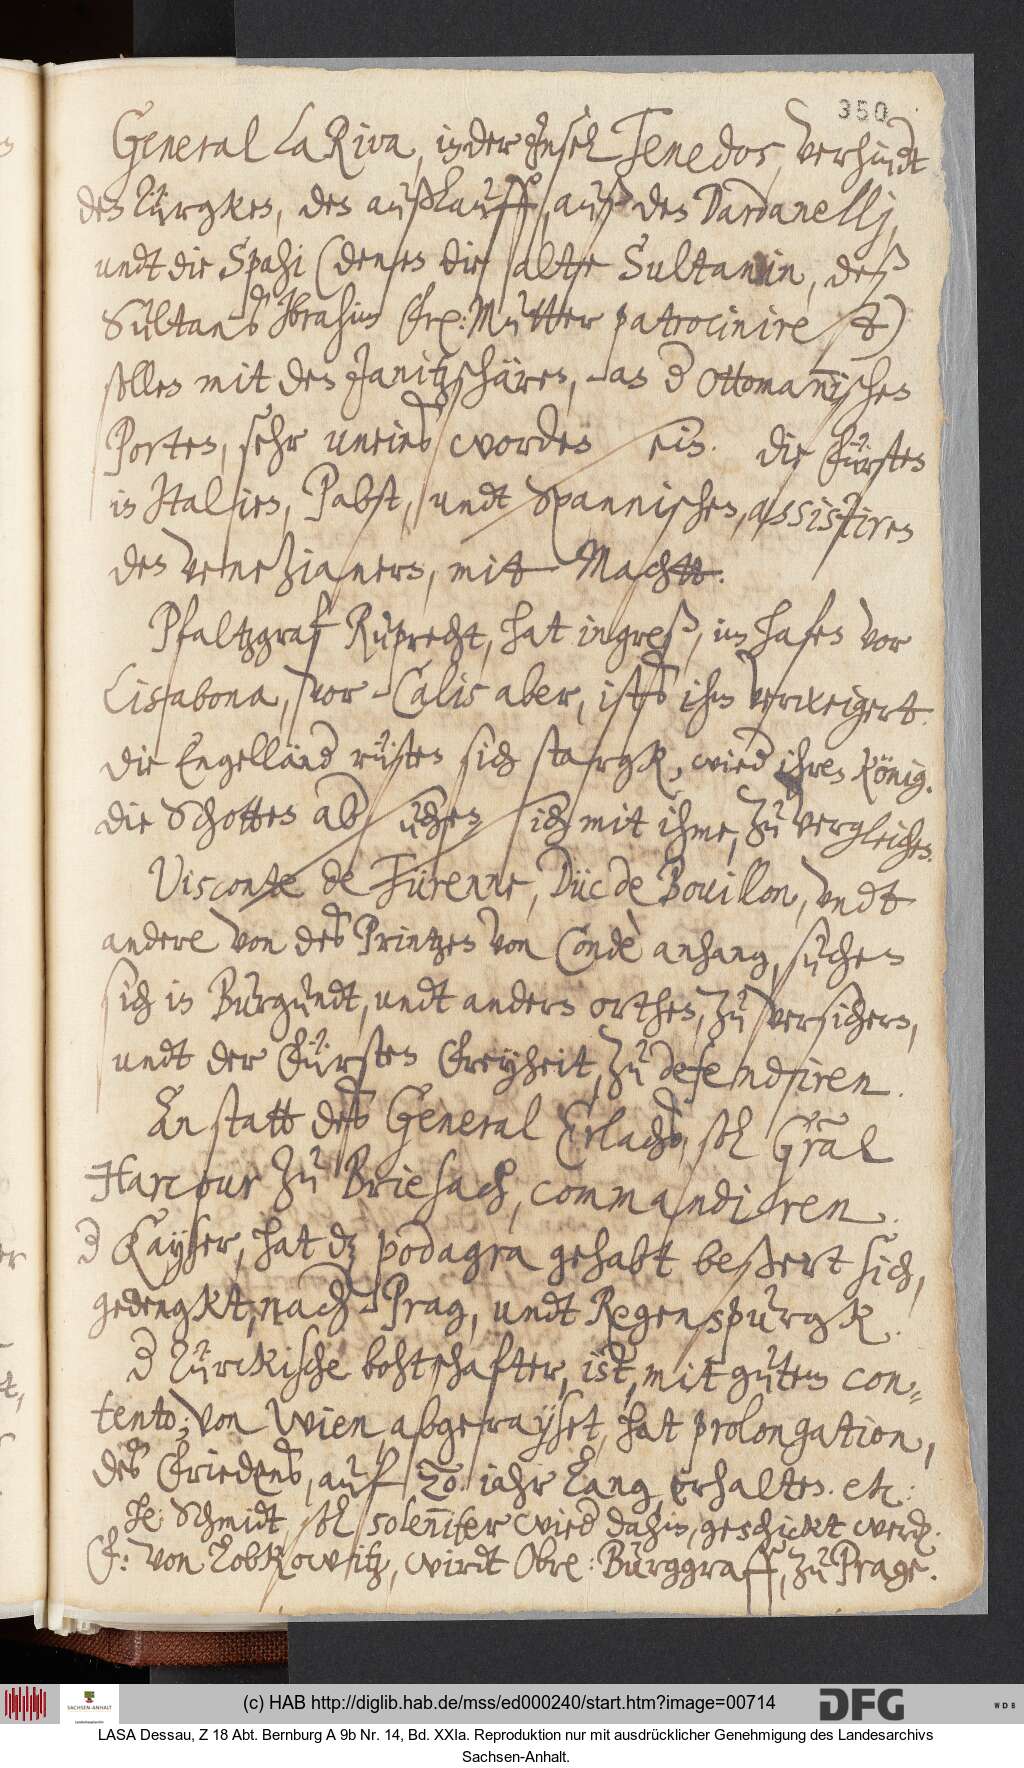 350
General La Riva, in der Insel Tenedos, verhindt
den Türgken, den außlauff, auß den Dardanellj,
undt die Spahi (denen die alte Sultanin, deß
Sultans Ibrahim Fr: Mutter patrocinire t)
sollen mit den Janitzschären, an d Ottomanischen
Porten, sehr uneins worden sein. die Fürsten
in Italien, Pabst, undt Spannischen, assistiren
den Venezianern, mit Macht.
Pfaltzgraf Ruprecht, hat ingreß, im hafen vor
Lisabona, vor Calis aber, ists ihm verweigert.
die Engelländ rüsten sich stargk, wied ihren König.
die Schotten ab suchen sich mit ihme, zu vergleichen.
Visconte de Türenne, Düc de Bouillon, undt
andere von des Printzen von Condè anhang, suchen
sich in Burgundt, undt andern orthen, zu versichern,
undt der Fürsten Freyheit, zu defendiren.
An statt des General Erlachs, sol Gral
Harcour zu Briesach, commandiren.
d Kayser, hat dz podagra gehabt beßert sich,
gedengkt, nach Prag, undt Regenspurgk.
d Türckische bohtschafter, ist, mit gutem con-
tento, von Wien, abgerayset, hat prolongation,
des Friedens, auf 20 iahr lang, erhalten. etc:
He: Schmidt, sol solenniter wied dahin, geschickt werd.
F: von Lobkowitz, wirdt Obre: Burggraff, zu Prage.
(c) HAB http://diglib.hab.de/mss/ed000240/start.htm?image=00714
SACHSEN-ANHALT
DFG
WDB
LASA Dessau, Z 18 Abt. Bernburg A 9b Nr. 14, Bd. XXIa. Reproduktion nur mit ausdrücklicher Genehmigung des Landesarchivs
Sachsen-Anhalt.